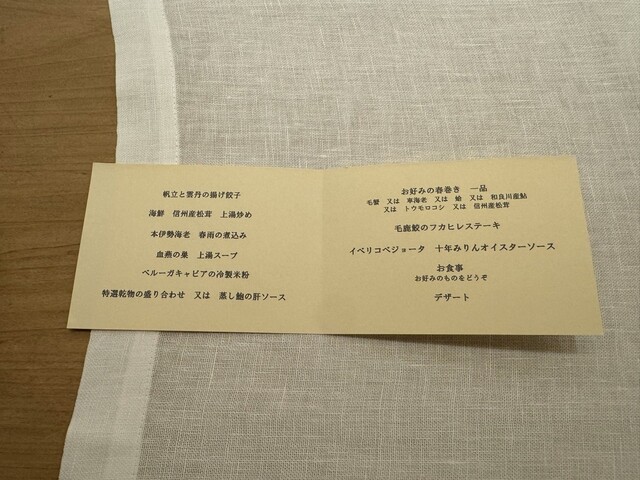 帆立と雲丹の揚げ餃子
海鮮 信州産松茸 上湯炒め
本伊勢海老 春雨の煮込み
血燕の巣 上湯スープ
ベルーガキャビアの冷製米粉
特選乾物の盛り合わせ 又は 蒸し鮑の肝ソース
お好みの春巻き 一品
毛蟹 又は 車海老 又は 蛤 又は 和良川産鮎
又は トウモロコシ 又は 信州産松茸
毛鹿鮫のフカヒレステーキ
イベリコベジョータ 十年みりんオイスターソース
お食事
お好みのものをどうぞ
デザート